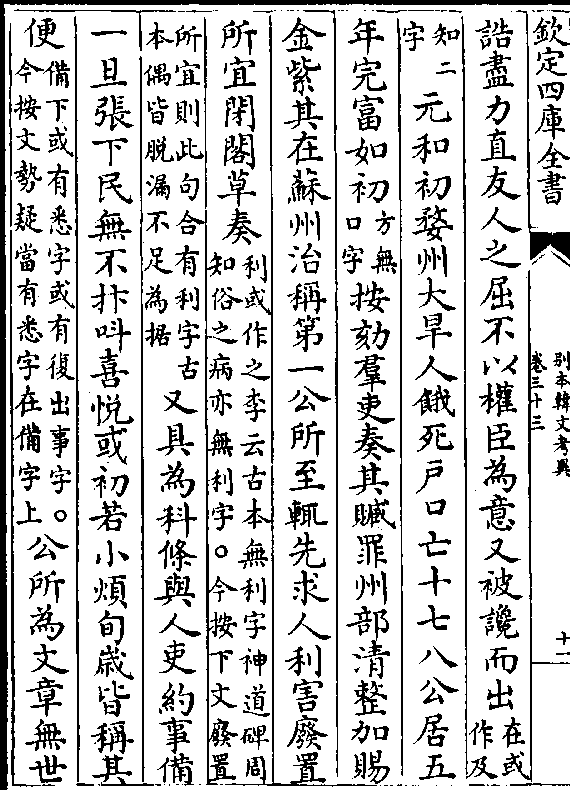 欽定四庫全書
別本韓文考異
卷三十三
十一
誥盡力直友人之屈不以權臣為意又被讒而出在或作及
知二字元和初婺州大旱人餓死戶口亡十七八公居五
年完富如初方無口字按劾羣吏奏其贓罪州部清整加賜
金紫其在蘇州治稱第一公所至輒先求人利害廢置
所宜閉閤草奏利或作之李云古本無利字神道碑周知俗之病亦無利字。今按下文廢置
所宜則此句合有利字古本偶皆脫漏不足為據又具為科條與人吏約事備
一旦張下民無不抃叫喜悅或初若小煩旬歲皆稱其
便備下或有悉字或有復出事字。今按文勢疑當有悉字在備字上公所為文章無世